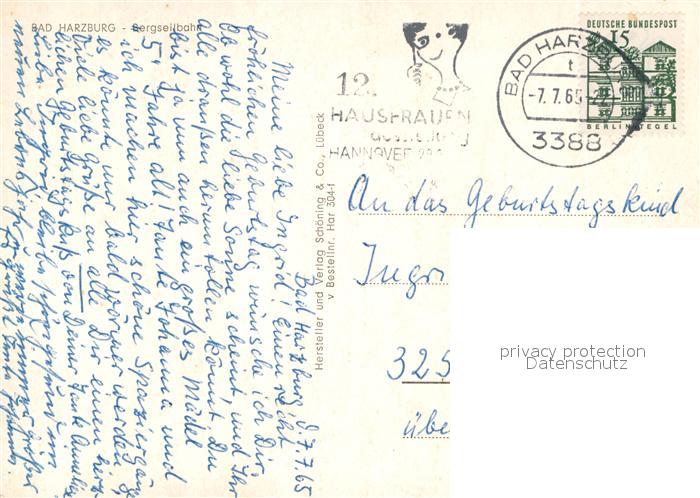 BAD HARZBURG - Bergseilbahn
Bad Harzburg d. 7.7.65
Meine liebe Ingrid! Einen recht
fröhlichen Geburtstag wünsche ich Dir.
Ob wohl die liebe Sonne scheint, und Ihr
alle draußen herum tollen könnt. Du
bist ja nun auch ein großes Mädel
5 Jahre alt! Tante Johanna und
ich machen hier schöne Spaziergänge
es könnte nur bald wärmer werden.
Viele liebe Grüße an alle Dir einen herz
lichen Geburtstagskuß von Deiner Tante
Liebe
Hersteller und Verlag Schöning & Co., Lübeck
v Bestellnr. Har 304-f
12.
HAUSFRAUEN
ausstellung
HANNOVER
BAD HARZB
t
-7.7.65-
3388
DEUTSCHE BUNDESPOST
15
BERLIN-TEGEL
An das Geburtstagskind
Ingri
325
übe
privacy protection
Datenschutz